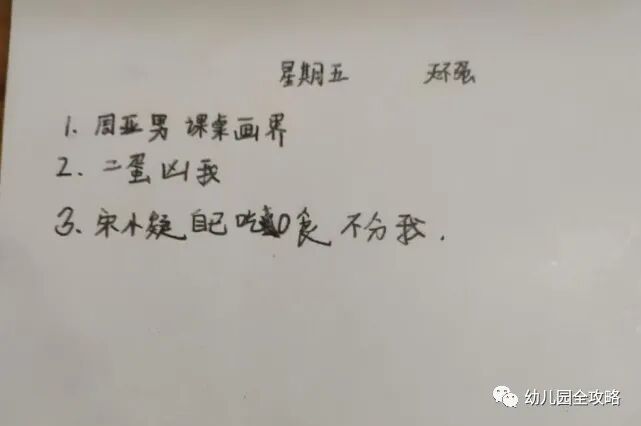 星期五 天不强
1. 周亚男 课桌画界
2. 二蛋凶我
3. 宋小疑 自己吃 食 不分我.
幼儿园全攻略